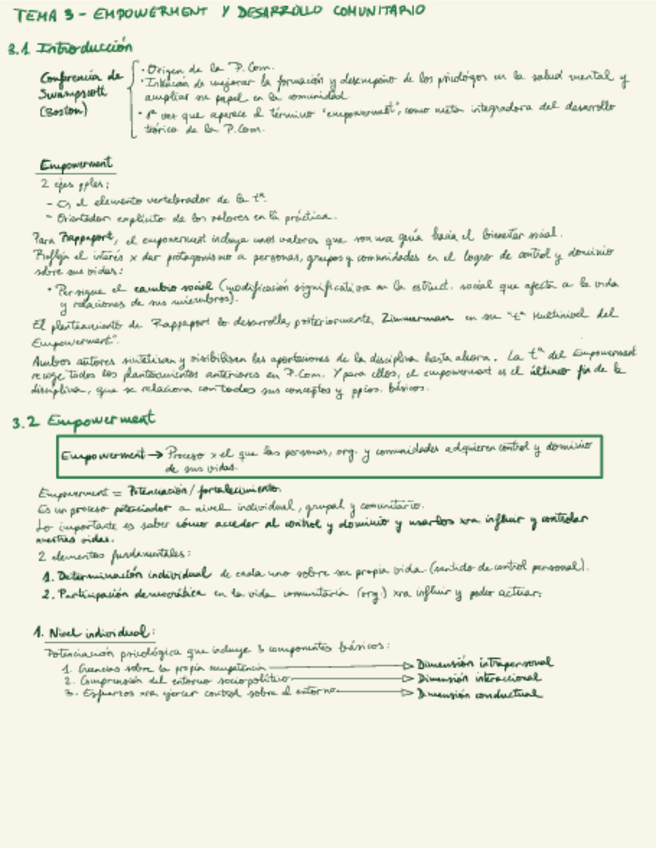 TEMA 3 - EMPOWERMENT Y DESARROLLO COMUNITARIO
3.1 Introducción
Conferencia de Swampscott (Boston)
· Origen de la P. Com.
· Intención de mejorar la formación y desempeño de los psicólogos en la salud mental y
ampliar su papel en la comunidad
· 1ª vez que aparece el término "empowerment", como meta integradora del desarrollo
teórico de la P. Com.
Empowerment
2 ejes pples:
- Es el elemento vertebrador de la tª.
- Orientador explícito de los valores en la práctica.
Para Rappaport, el empowerment incluye unos valores que son una guía hacia el bienestar social.
Refleja el interés x dar protagonismo a personas, grupos y comunidades en el logro de control y dominio
sobre sus vidas:
· Persigue el cambio social (modificación significativa en la estruct. social que afecta a la vida
y relaciones de sus miembros).
El planteamiento de Rappaport lo desarrolla, posteriormente, Zimmerman en su "tª Multinivel del
Empowerment".
Ambos autores sintetizan y visibilizan las aportaciones de la disciplina hasta ahora. La tª del Empowerment
recoge todos los planteamientos anteriores en P. Com. Y para ellos, el empowerment es el último fin de la
disciplina, que se relaciona con todos sus conceptos y ppios. básicos.
3.2 Empowerment
Empowerment → Proceso x el que las personas, org. y comunidades adquieren control y dominio
de sus vidas.
Empowerment = Potenciación / fortalecimiento.
Es un proceso potenciador a nivel individual, grupal y comunitario.
Lo importante es saber cómo acceder al control y dominio y usarlos xra influir y controlar
nuestras vidas.
2 elementos fundamentales:
1. Determinación individual de cada uno sobre su propia vida (sentido de control personal).
2. Participación democrática en la vida comunitaria (org.) xra influir y poder actuar.
1. Nivel individual:
Potenciación psicológica que incluye 3 componentes básicos:
1. Creencias sobre la propia competencia → Dimensión intrapersonal
2. Comprensión del entorno sociopolítico → Dimensión interaccional
3. Esfuerzos xra ejercer control sobre el entorno → Dimensión conductual